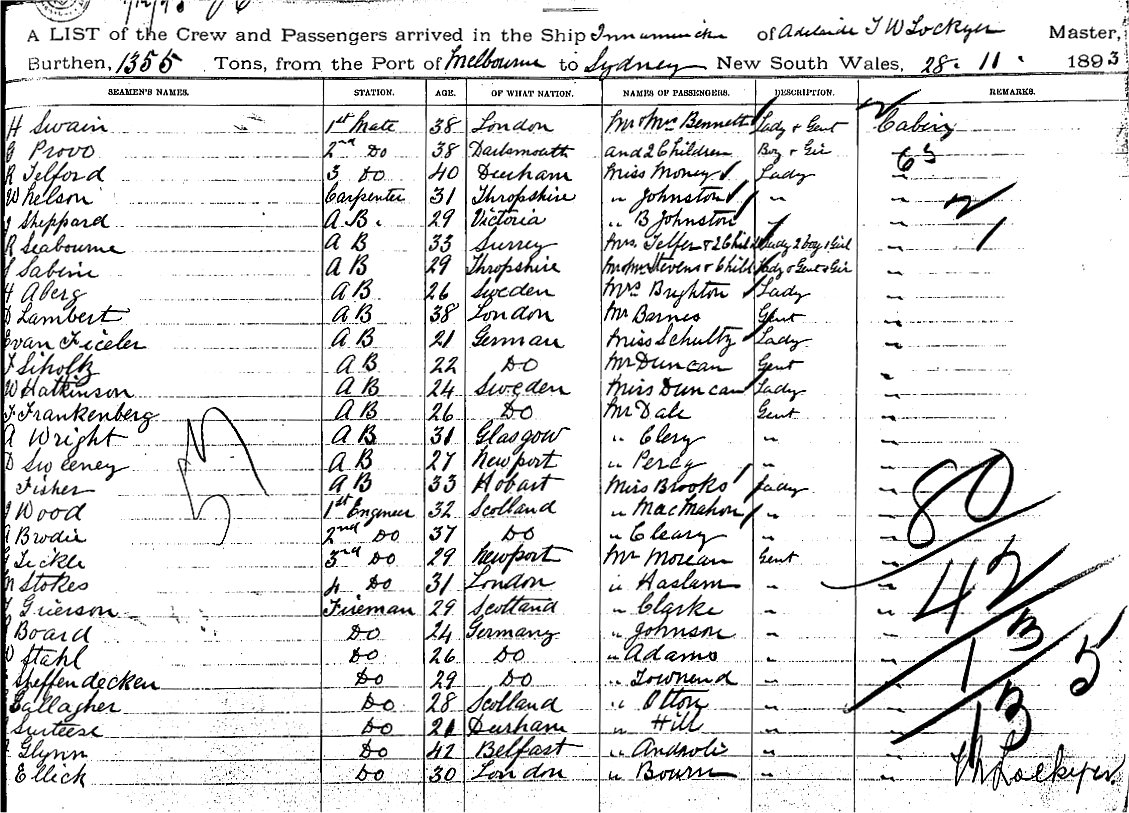 A LIST of the Crew and Passengers arrived in the Ship Innamincka of Adelaide T W Lockyer Master,
Burthen, 1355 Tons, from the Port of Melbourne to Sydney New South Wales, 28. 11. 1893
SEAMEN'S NAMES. STATION. AGE. OF WHAT NATION. NAMES OF PASSENGERS. DESCRIPTION. REMARKS.
H Swain 1st Mate 38 London Mr & Mrs Bennett Lady & Gent Cabin
Provo 2nd Do 38 Dartsmouth and 2 Children Boy & Gir "
R Telford 3 Do 40 Durham Miss Money Lady "
W Nelson Carpenter 31 Thropshire " Johnston " "
J Sheppard A.B. 29 Victoria " B Johnston " "
R Seabourne A B 33 Surrey Mrs. Telfer & 2 Child Lady 2 boy & Girl "
Sabin A B 29 Thropshire Mr & Mrs Stevens & Chill Lady & Gent & Gir "
H Aberg A B 26 Sweden Mrs Brighton Lady "
D Lambert A B 38 London Mr Barnes Gent "
Evan Ficeler A B 21 German Miss Schultz Lady "
F Siholtz A B 22 Do Mr Duncan Gent "
W Hatkinson A B 24 Sweden Miss Duncan Lady "
F Frankenberg A B 26 Do Mr Dale Gent "
A Wright A B 31 Glasgow " Clery " "
D Sweeney A B 27 Newport " Percy " "
Fisher A B 33 Hobart Miss Brooks Lady "
J Wood 1st Engineer 32 Scotland " MacMahon " "
A Brodie 2nd Do 37 Do " Cleary " "
G Tickle 3rd Do 29 Newport Mr Morean Gent "
Stokes 4 Do 31 London " Haslam " "
Grierson Fireman 29 Scotland " Clarke " "
Board Do 24 Germany " Johnson " "
W Stahl Do 26 Do " Adams " "
Steffendecken Do 29 Do " Townend " "
Gallagher Do 28 Scotland " Otton " "
Surtees Do 21 Durham " Hill " "
Glynn Do 42 Belfast " Androli " "
Ellick Do 30 London " Bourn " "
53
80
42
1
13
5
T W Lockyer